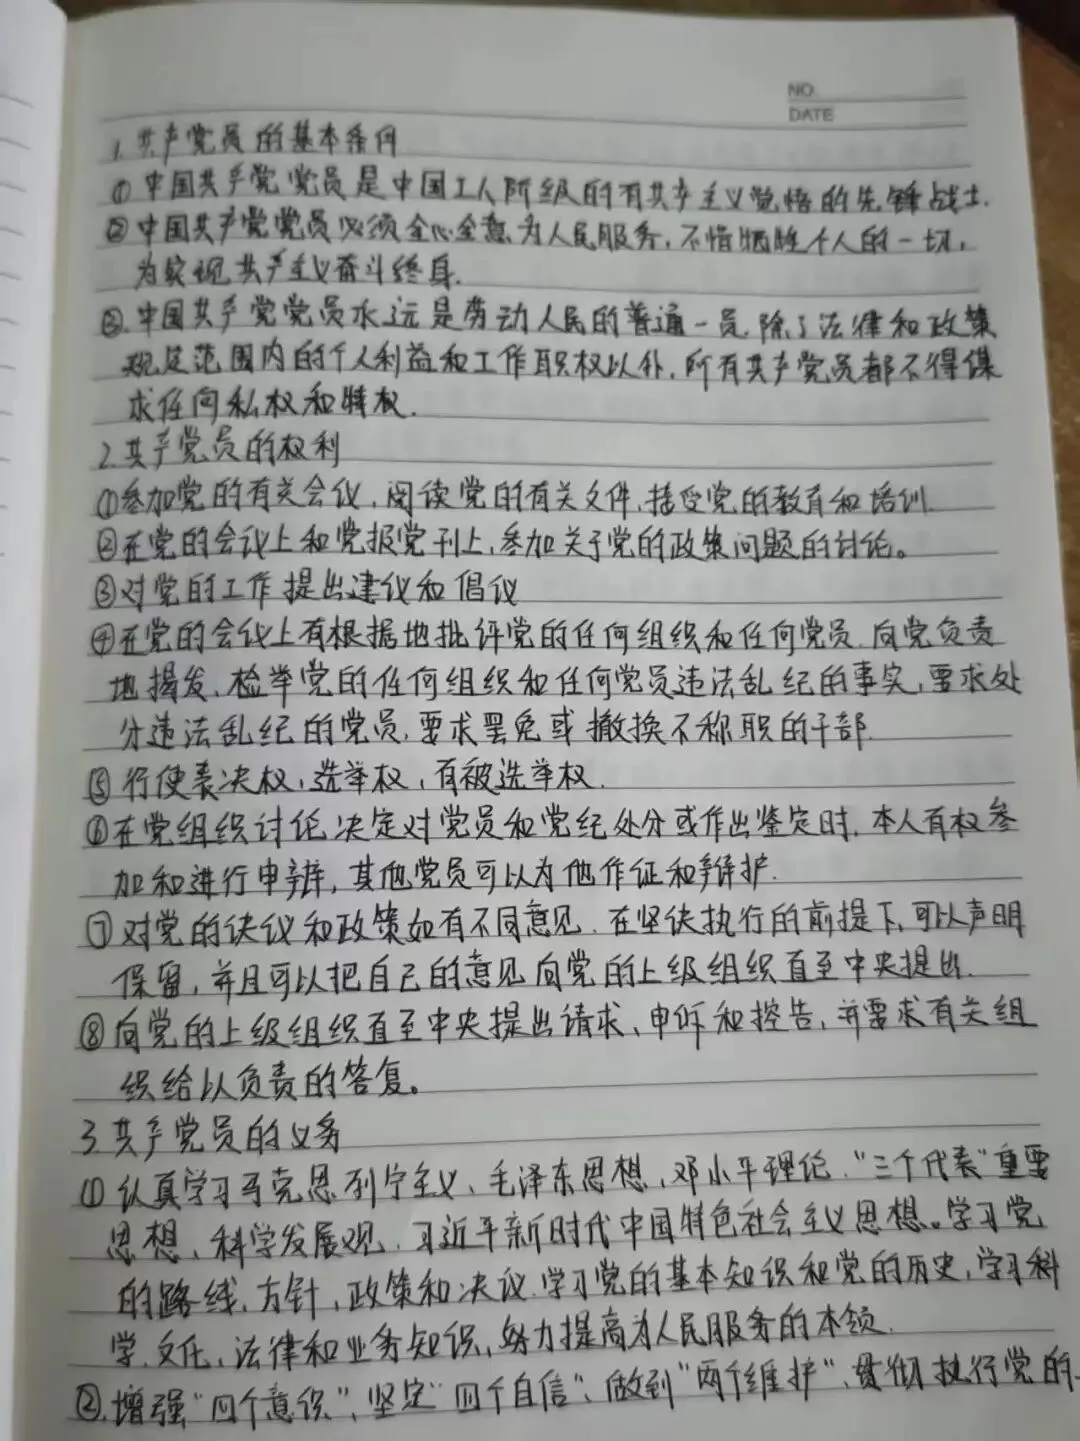 NO.
DATE
1.共产党员的基本条件
①中国共产党党员是中国工人阶级的有共产主义觉悟的先锋战士.
②中国共产党党员必须全心全意为人民服务,不惜牺牲个人的一切,
为实现共产主义奋斗终身.
③.中国共产党党员永远是劳动人民的普通一员.除了法律和政策
规定范围内的个人利益和工作职权以外,所有共产党员都不得谋
求任何私权和特权.
2.共产党员的权利
①参加党的有关会议,阅读党的有关文件,接受党的教育和培训.
②在党的会议上和党报党刊上,参加关于党的政策问题的讨论。
③对党的工作提出建议和倡议
④在党的会议上有根据地批评党的任何组织和任何党员.向党负责
地揭发、检举党的任何组织和任何党员违法乱纪的事实,要求处
分违法乱纪的党员,要求罢免或撤换不称职的干部.
⑤行使表决权,选举权,有被选举权.
⑥在党组织讨论决定对党员和党纪处分或作出鉴定时,本人有权参
加和进行申辩,其他党员可以为他作证和辩护.
⑦对党的决议和政策如有不同意见.在坚决执行的前提下,可以声明
保留,并且可以把自己的意见向党的上级组织直至中央提出.
⑧向党的上级组织直至中央提出请求、申诉和控告,并要求有关组
织给以负责的答复。
3.共产党员的义务
①认真学习马克思列宁主义、毛泽东思想,邓小平理论."三个代表"重要
思想、科学发展观.习近平新时代中国特色社会主义思想。学习党
的路线,方针,政策和决议.学习党的基本知识和党的历史,学习科
学.文化,法律和业务知识,努力提高为人民服务的本领.
②.增强"四个意识"、坚定"四个自信"、做到"两个维护"、贯彻执行党的